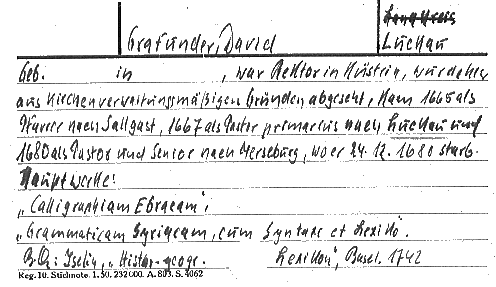 Landkreis
Grafunder, David Luckau
Geb. in , war Rektor in Küstrin, wurde hier
aus kirchenverwaltungsmäßigen Gründen abgesetzt, kam 1665 als
Pfarrer nach Sallgast, 1667 als Pastor primarius nach Luckau und
1680 als Pastor und Senior nach Merseburg, wo er 24. 12. 1680 starb.
Hauptwerke:
„Calligraphiam Ebraeam",
„Grammaticam Syriacam, cum Syntaxe et Lexikō.
B. Qu: Iselin, „Histor.-geogr. Lexikon", Basel. 1742
Keg. 10. Stichnote. 1. 50. 232000. A. 803. S. 4062